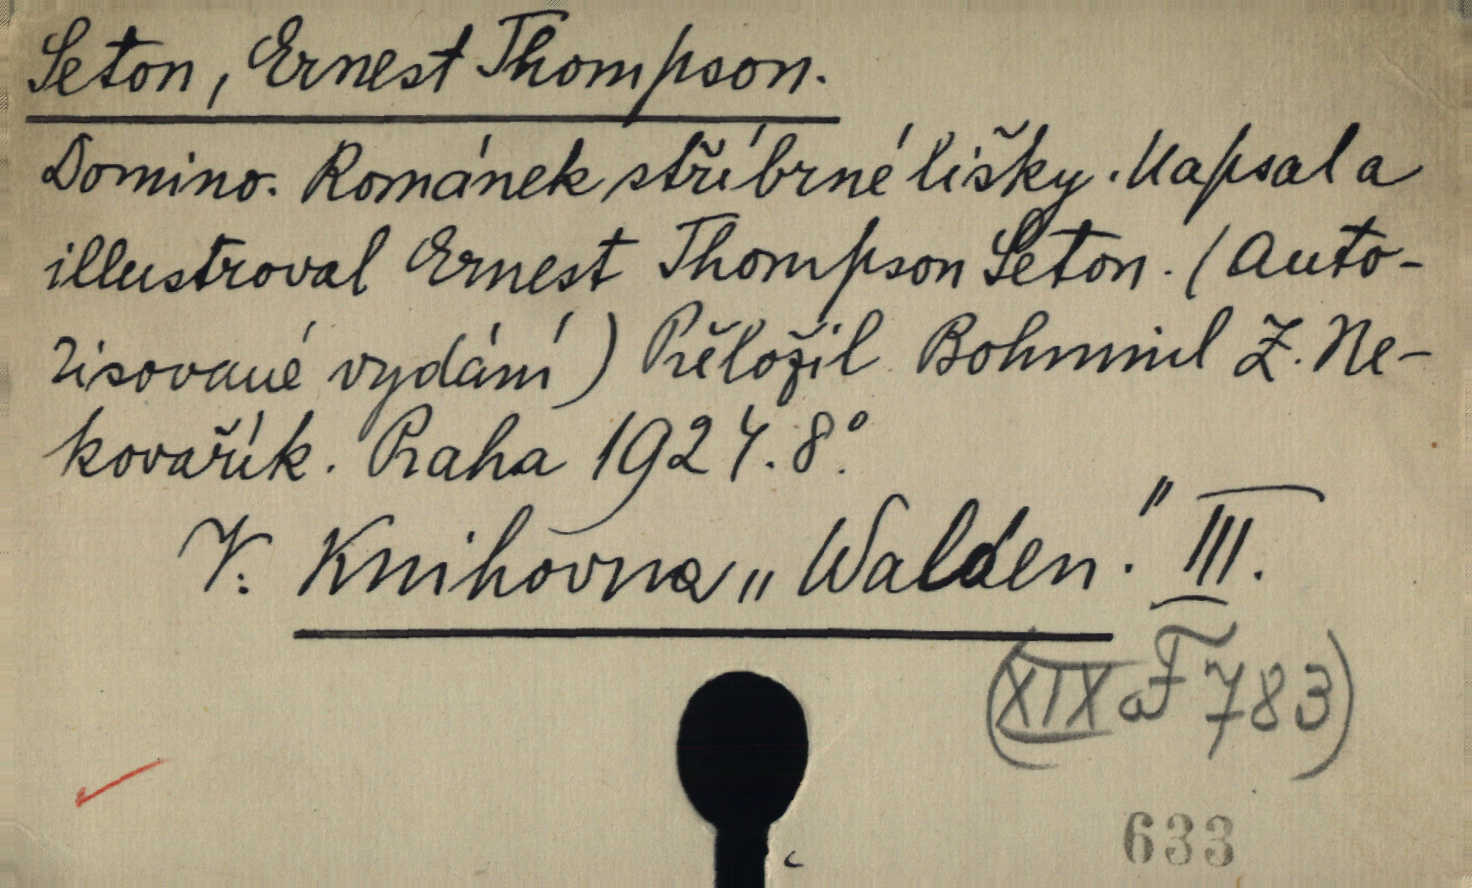 Seton, Ernest Thompson.
Domino. Románek stříbrné lišky. Napsal a
illustroval Ernest Thompson Seton. (Auto-
risované vydání) Přeložil Bohumil Z. Ne-
kovařík. Praha 1924. 8°.
V: Knihovna „Walden." III.
(XIX a F 783)
633